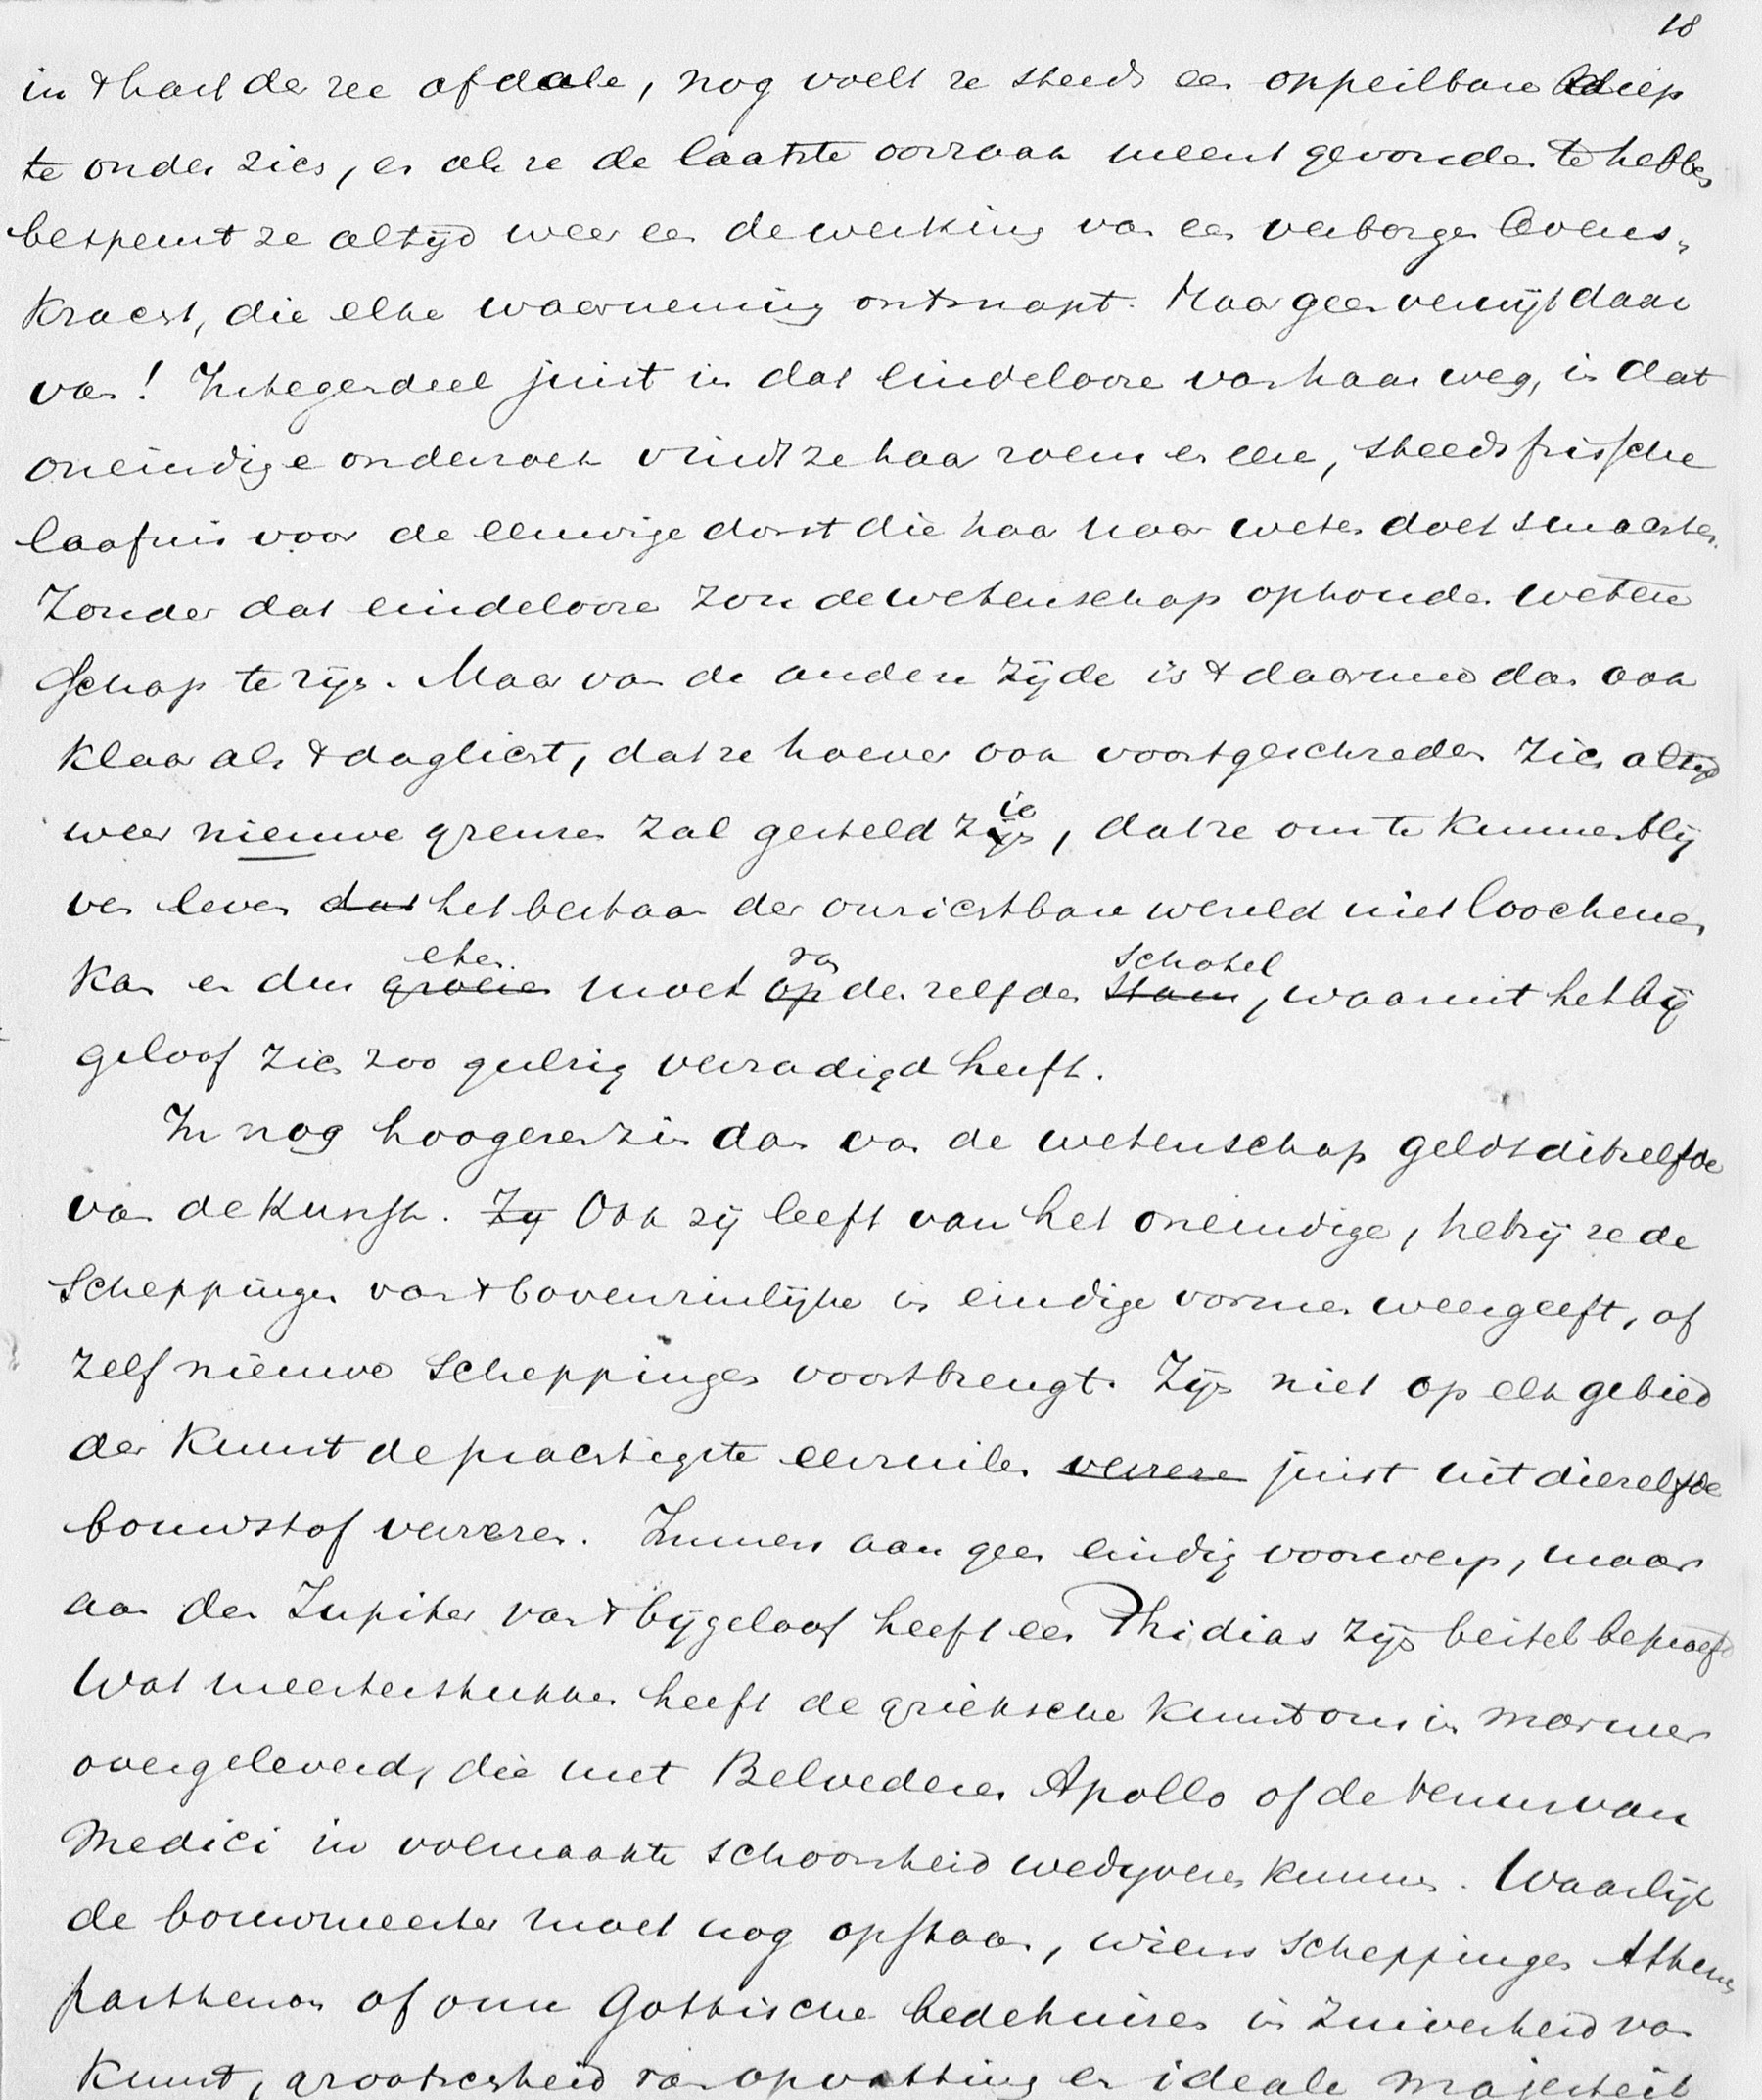 18
in 't hart der zee afdale, nog voelt ze steeds een onpeilbare diep
te onder zich, en als ze de laatste oorzaak meent gevonden te hebben
bespeurt ze altijd weer een de werking van een verborgen levens-
kracht, die elke waarneming ontsnapt. Maar geen verwijt daar
van! Integendeel juist in dat eindelooze van haar weg, in dat
oneindige onderzoek vindt ze haar roem en eere, steeds frissche
laafnis voor de eeuwige dorst die haar naar weten doet smachten.
Zonder dat eindelooze zou de wetenschap ophouden weten
schap te zijn. Maar van de andere zijde is 't daarmeê dan ook
klaar als 't daglicht, dat ze hoever ook voortgeschreden zich altijd
weer nieuwe grenzen zal gesteld zijn zien, dat ze om te kunnen blij
ven leven dat het bestaan der onzichtbare wereld niet loochenen
kan en dus groeien eten moet op van den zelfden stam schotel, waaruit het bij
geloof zich zoo gulzig verzadigd heeft.
In nog hoogeren zin dan van de wetenschap geldt ditzelfde
van de kunst. Zij Ook zij leeft van het oneindige, hetzij ze de
scheppingen van 't bovenzinlijke in eindige vormen weergeeft, of
zelf nieuwe scheppingen voortbrengt. Zijn niet op elk gebied
der kunst de prachtigste eerzuilen verrezen juist uit diezelfde
bouwstof verrezen. Immers aan geen eindig voorwerp, maar
aan den Jupiter van 't bijgeloof heeft een Phidias zijn beitel beproefd
Wat meesterstukken heeft de grieksche kunst ons in marmer
overgeleverd, die met Belvederes Apollo of de Venus van
Medici in volmaakte schoonheid wedijveren kunnen. Waarlijk
de bouwmeester moet nog opstaan, wiens scheppingen Athenes
Parthenon of onze Gothische bedehuizen in zuiverheid van
kunst, grootschheid van opvatting en ideale majesteit